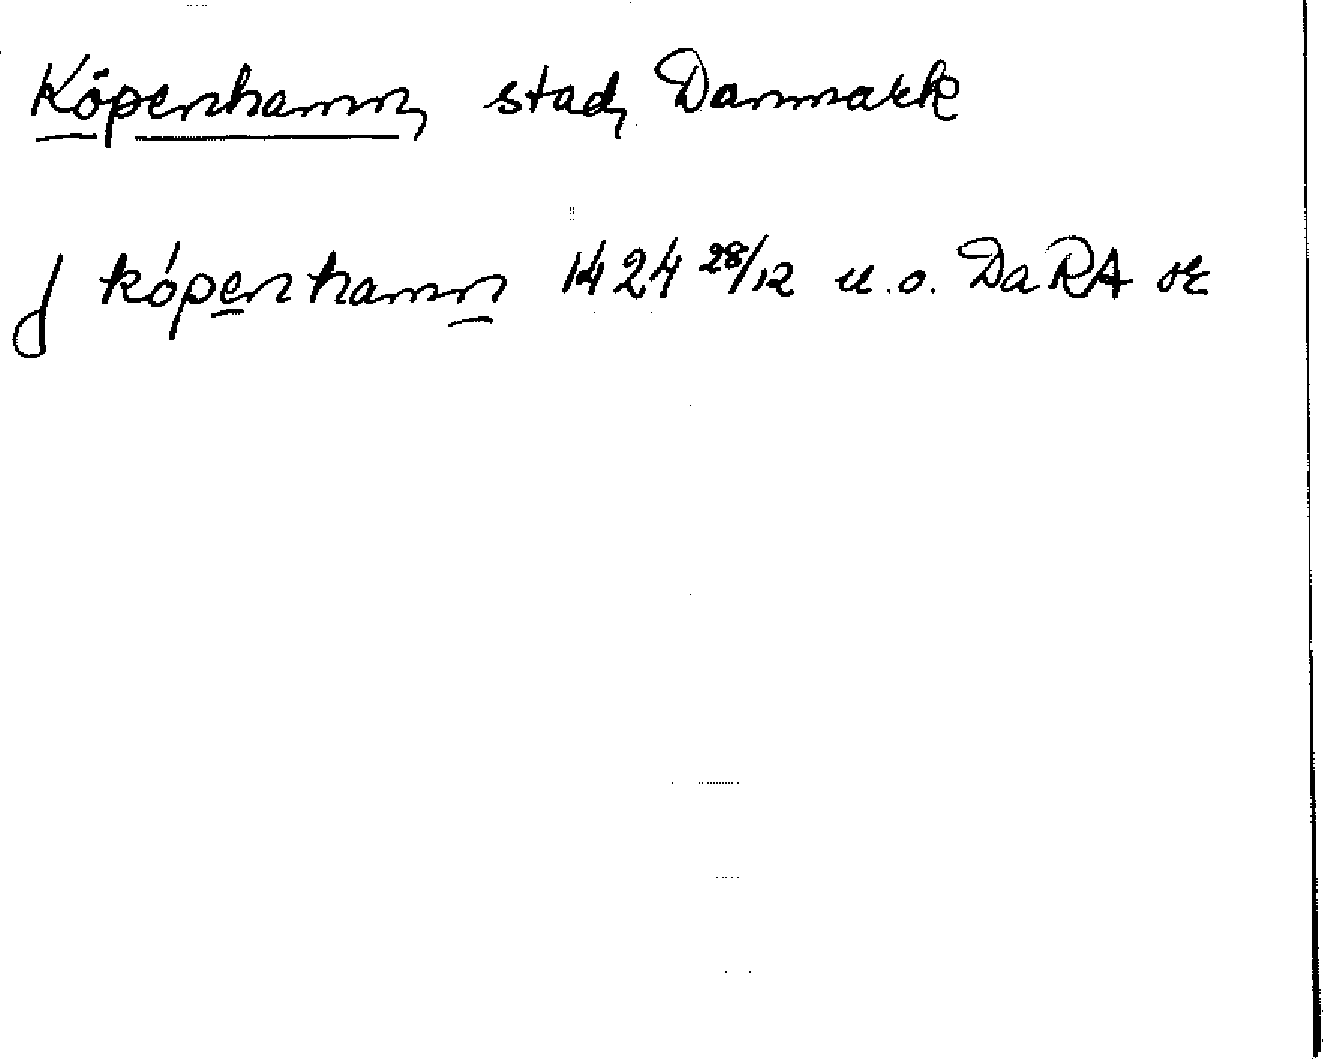 Köpenhamn, stad, Danmark
kópenhamn 1424 28/12 u.o. DaRA or